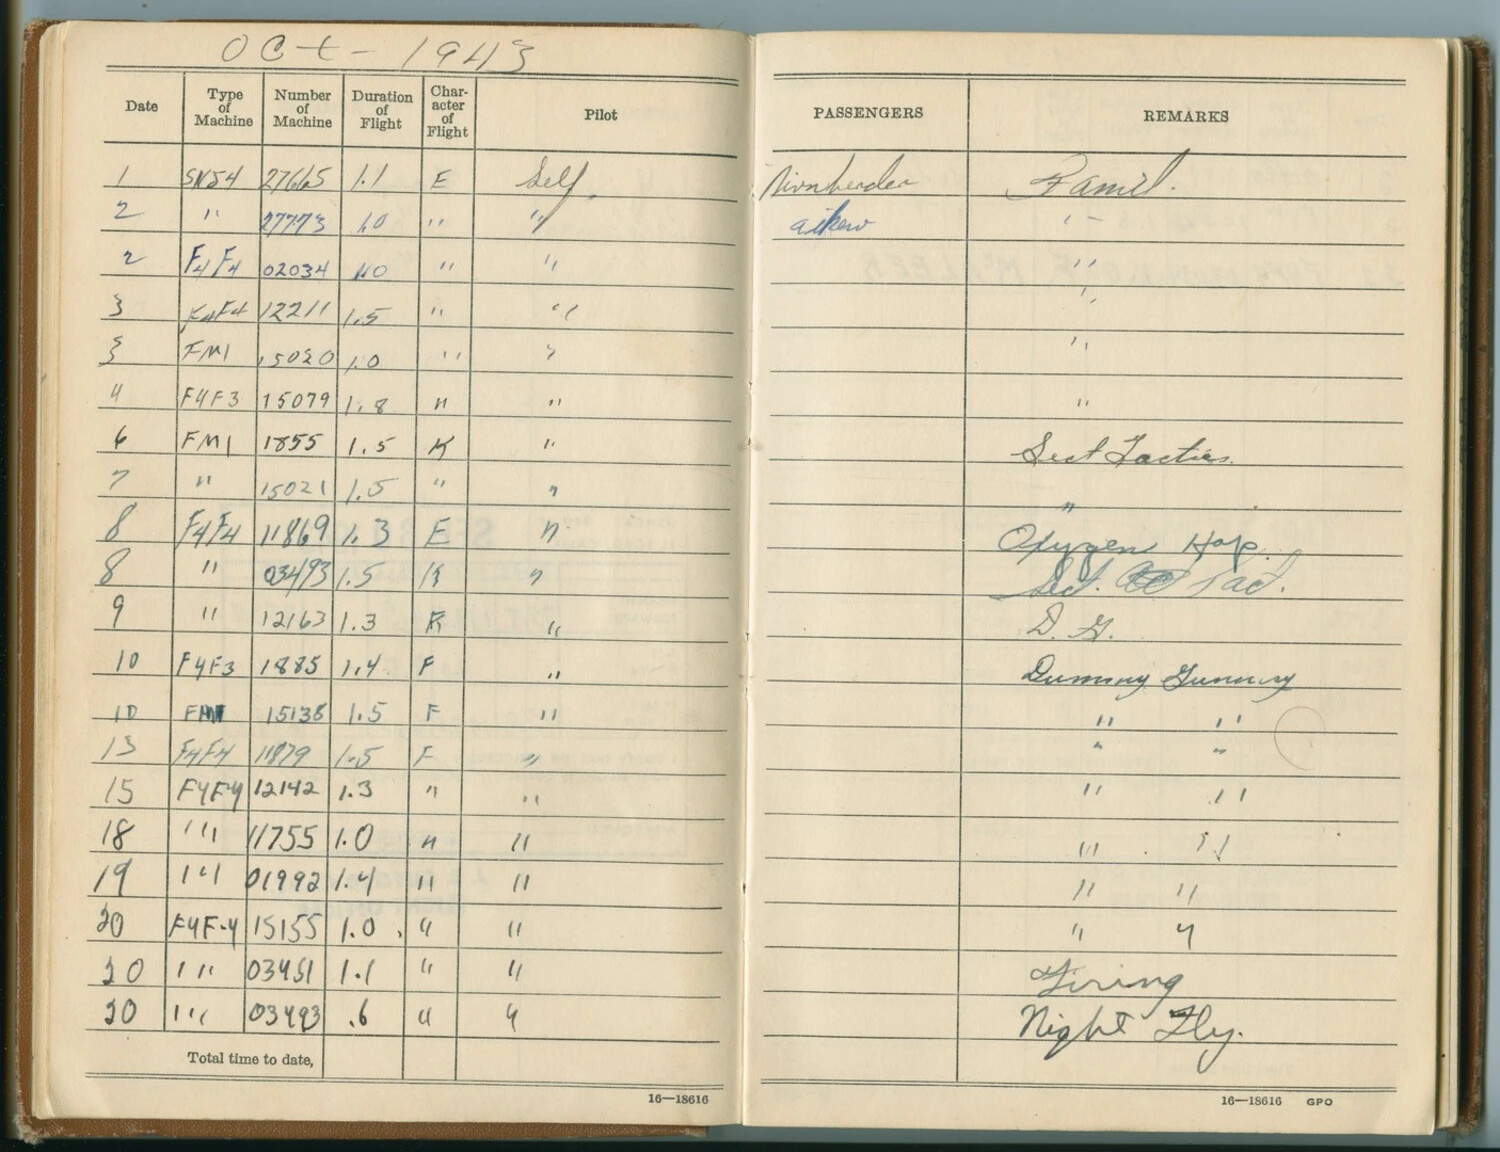 Oct - 1943
Date Type of Machine Number of Machine Duration of Flight Character of Flight Pilot PASSENGERS REMARKS
1 SNJ4 27665 1.1 E Self Famil.
2 " 27773 1.0 " " Aiken "
2 F4F4 02034 1.0 " " "
3 F4F4 12211 1.5 " " "
3 FM1 15020 1.0 " " "
4 F4F3 15079 1.8 " " "
6 FM1 1855 1.5 K " Sect Tactics.
7 " 15021 1.5 " " "
8 F4F4 11869 1.3 E " Oxygen Hop.
8 " 03493 1.5 K " Sect. Tact.
9 " 12163 1.3 K " D. G.
10 F4F3 1885 1.4 F " Dummy Gunnery
10 FM1 15138 1.5 F " " "
13 F4F4 11879 1.5 F " " "
15 F4F4 12142 1.3 " " " "
18 " 11755 1.0 " " " "
19 " 01992 1.4 " " " "
20 F4F-4 15155 1.0 " " " "
20 " 03451 1.1 " " Firing
20 " 03493 .6 " " Night Fly.
Total time to date,
16—18616 16—18616 GPO